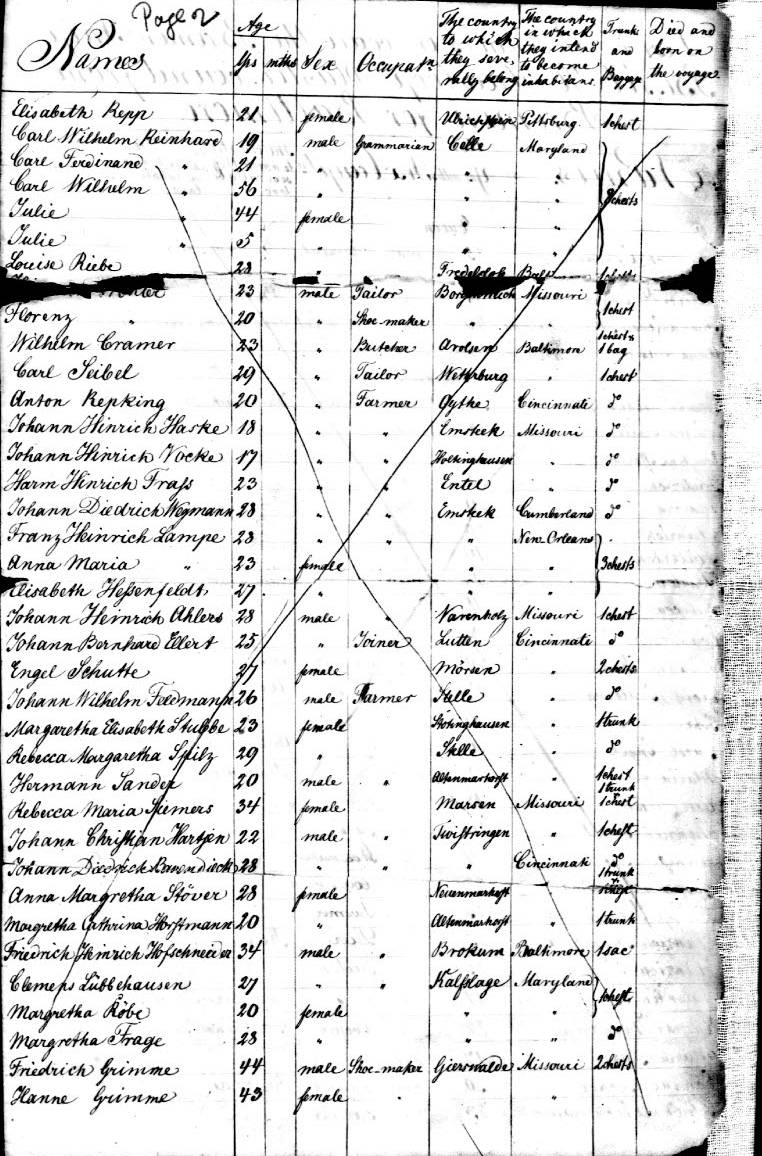 Page 2
Names Age Yrs mths Sex Occupatn The country to which they severally belong The country in which they intend to become inhabitans Trunk and Baggage Died and born on the voyage
Elisabeth Repp 21 female Ulrichstein Pittsburg 1 chest
Carl Wilhelm Reinhard 19 male Grammarian Celle Maryland
Carl Ferdinand " 21 " " "
Carl Wilhelm " 56 " " " chests
Julie " 44 female " "
Julie " 5 " " "
Louise Riebe 23 " Balt
23 male Tailor Missouri
Florenz " 20 " Shoe-maker " " 1 chest
Wilhelm Cramer 23 " Butcher Arolsen Baltimore 1 chest & 1 bag
Carl Seibel 29 " Tailor Wetterburg " 1 chest
Anton Repking 20 " Farmer Oythe Cincinnati do
Johann Hinrich Haske 18 " " Emstek Missouri do
Johann Hinrich Vocke 17 " " Holtinghausen " do
Harm Hinrich Frass 23 " " Entel " do
Johann Diedrich Wegmann 28 " " Emstek Cumberland do
Franz Heinrich Lampe 28 " " " New Orleans
Anna Maria " 23 female " " 3 chests
Elisabeth Hessenfeldt 27 " " "
Johann Heinrich Ahlers 28 male " Varenholz Missouri 1 chest
Johann Bernhard Ellert 25 " Joiner Lutten Cincinnati do
Engel Schutte 27 female Mörsen " 2 chests
Johann Wilhelm Feldmann 26 male Farmer Stelle " do
Margaretha Elisabeth 23 female " 1 trunk
Rebecca Margaretha Spilz 29 " Stelle " do
Hermann Sander 20 male " Altenmarhorst " 1 chest 1 trunk
Rebecca Maria Siemers 34 female Marsen Missouri 1 chest
Johann Christian Hartjen 22 male " Twistringen " 1 chest
Johann Diedrich 28 " " " Cincinnati do 1 trunk
Anna Margretha Stöver 28 female Neuenmarhorst " 1 chest
Margretha Cathrina Horstmann 20 " Altenmarhorst " 1 trunk
Friedrich Heinrich Hofschneider 34 male " Brokum Baltimore 1 sac
Clemens Lübbehausen 27 " " Kalfslage Maryland
Margretha Röbe 20 female " " 1 chest
Margretha Frage 28 " " " do
Friedrich Grimme 44 male Shoe-maker Gierswalde Missouri 2 chests
Hanne Grimme 43 female " " "